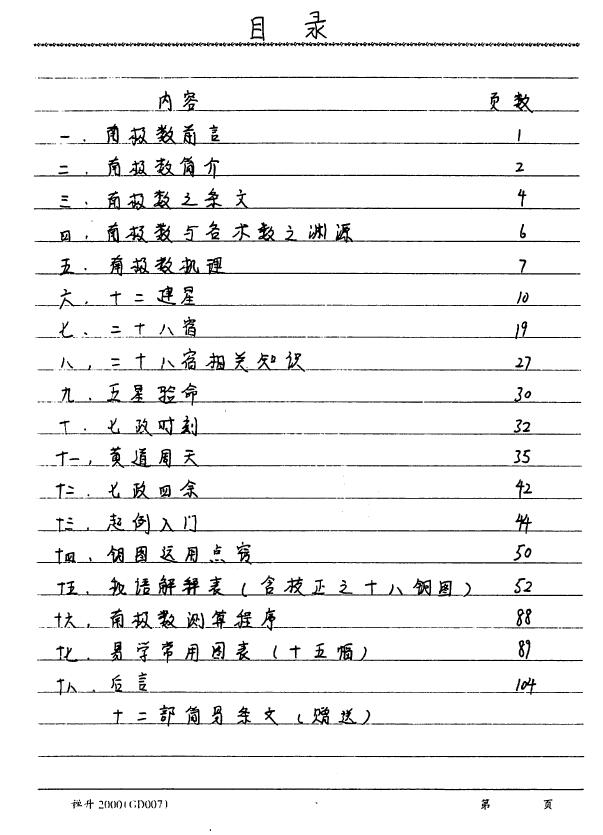 目 录
内容 页数
一. 南极数前言 1
二. 南极数简介 2
三. 南极数之条文 4
四. 南极数与各术数之渊源 6
五. 南极数机理 7
六. 十二建星 10
七. 二十八宿 19
八, 二十八宿相关知识 27
九. 五星验命 30
十. 七政时刻 32
十一, 黄道周天 35
十二. 七政四余 42
十三. 起例入门 44
十四. 钥图运用点窍 50
十五. 秘语解释表(含校正之十八钥图) 52
十六, 南极数测算程序 88
十七. 易学常用图表(十五幅) 89
十八. 后言 104
十二部简易条文(赠送)
2000(GD007) 第 页